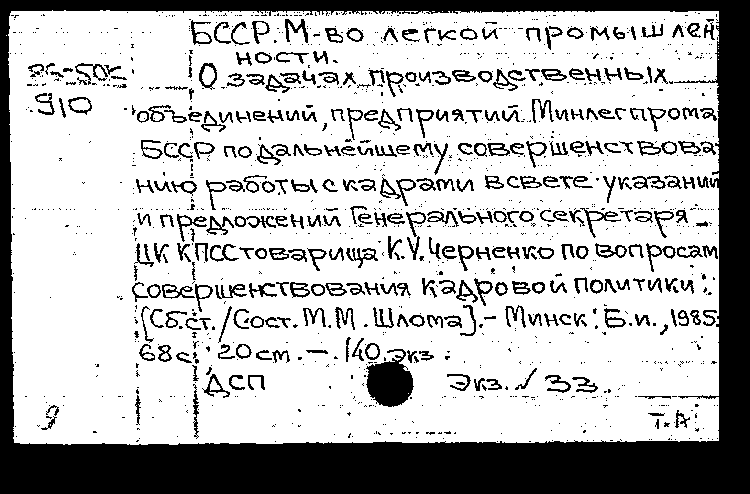 БССР. М-во легкой промышлен
ности.
86-50К
О задачах производственных
910
объединений, предприятий Минлегпрома
БССР по дальнейшему совершенствова
нию работы с кадрами в свете указаний
и предложений Генерального секретаря
ЦК КПСС товарища К.У. Черненко по вопросам
совершенствования кадровой политики:
[Сб.ст./Сост. М.М. Шлома]. – Минск: Б.и., 1985.
68 с. 20 см. – 140 экз.
ДСП Экз. № 33.
9 Т.А